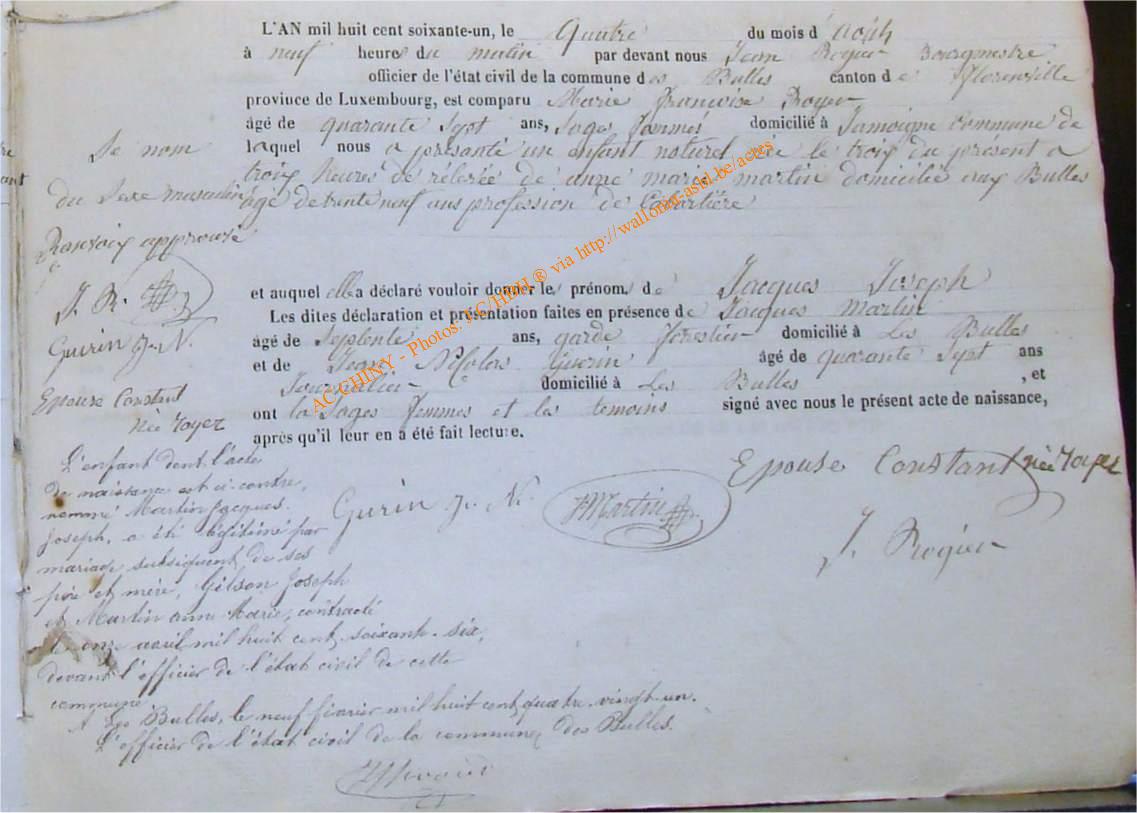 L'AN mil huit cent soixante-un, le Quatre du mois d'Août
à neuf heures du matin par devant nous Jean Rogier Bourgmestre
officier de l'état civil de la commune des Bulles canton de Florenville
province de Luxembourg, est comparu Marie Françoise Royer
âgé de quarante Sept ans, Sages femmes domicilié à Jamoigne commune de
laquel nous a présanté un enfant naturel née le trois du présent a
trois heures de relevée de anne marie martin domiciliée aux Bulles
âgé de trente neuf ans profession de
et auquel elle a déclaré vouloir donner les prénoms de Jacques Joseph
Les dites déclaration et présentation faites en présence de Jacques Martin
âgé de Septente ans, garde forestier domicilié à Les Bulles
et de Jean Nicolas Guerin âgé de quarante Sept ans
Journalier domicilié à Les Bulles , et
ont la Sages femmes et les temoins signé avec nous le présent acte de naissance,
après qu'il leur en a été fait lecture.
Epouse Constant née Royer
Guirin J. N. JMartin
J. Rogier
Le nom
du Sexe masculin
Renvoix approuvé
J. R.
Guirin J. N.
Epouse Constant
née Royer
L'enfant dont l'acte
de naissance est ci-contre,
nommé Martin Jacques
Joseph, a été légitimé par
mariage subséquent de ses
père et mère, Gilson Joseph
et Martin anne Marie, contracté
le onze avril mil huit cent soixante-six,
devant l'officier de l'état civil de cette
commune.
Les Bulles, le neuf février mil huit cent quatre-vingt-un.
L'officier de l'état civil de la commune des Bulles.
AC CHINY - Photos: YC/HBH ® via http://wallonia-asbl.be/actes